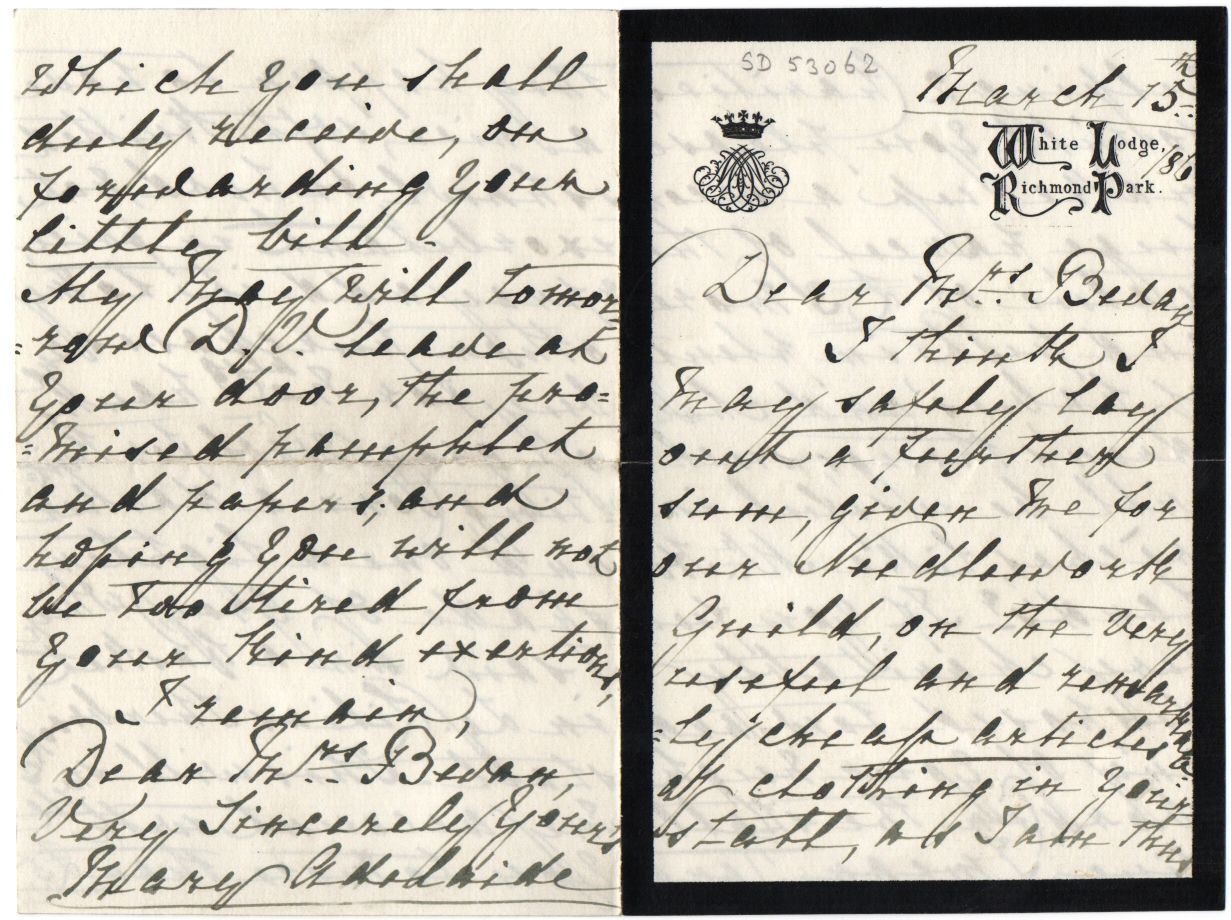 SD 53062
March 15th
White Lodge,
/86
Richmond Park.
Dear Mrs. Bevan
I think I
may safely lay
out a further
sum, given me for
our Needlework
Guild, on the very
useful and remarkab-
-ly cheap articles
of clothing in your
stall, as I am thus
which you shall
duly receive, on
forwarding your
little bill.
My May will tomor-
-row D.V. leave at
your door, the pro-
-mised pamphlet
and papers; and
hoping you will not
be too tired from
your kind exertions,
I remain,
Dear Mrs. Bevan,
Very Sincerely Yours
Mary Adelaide